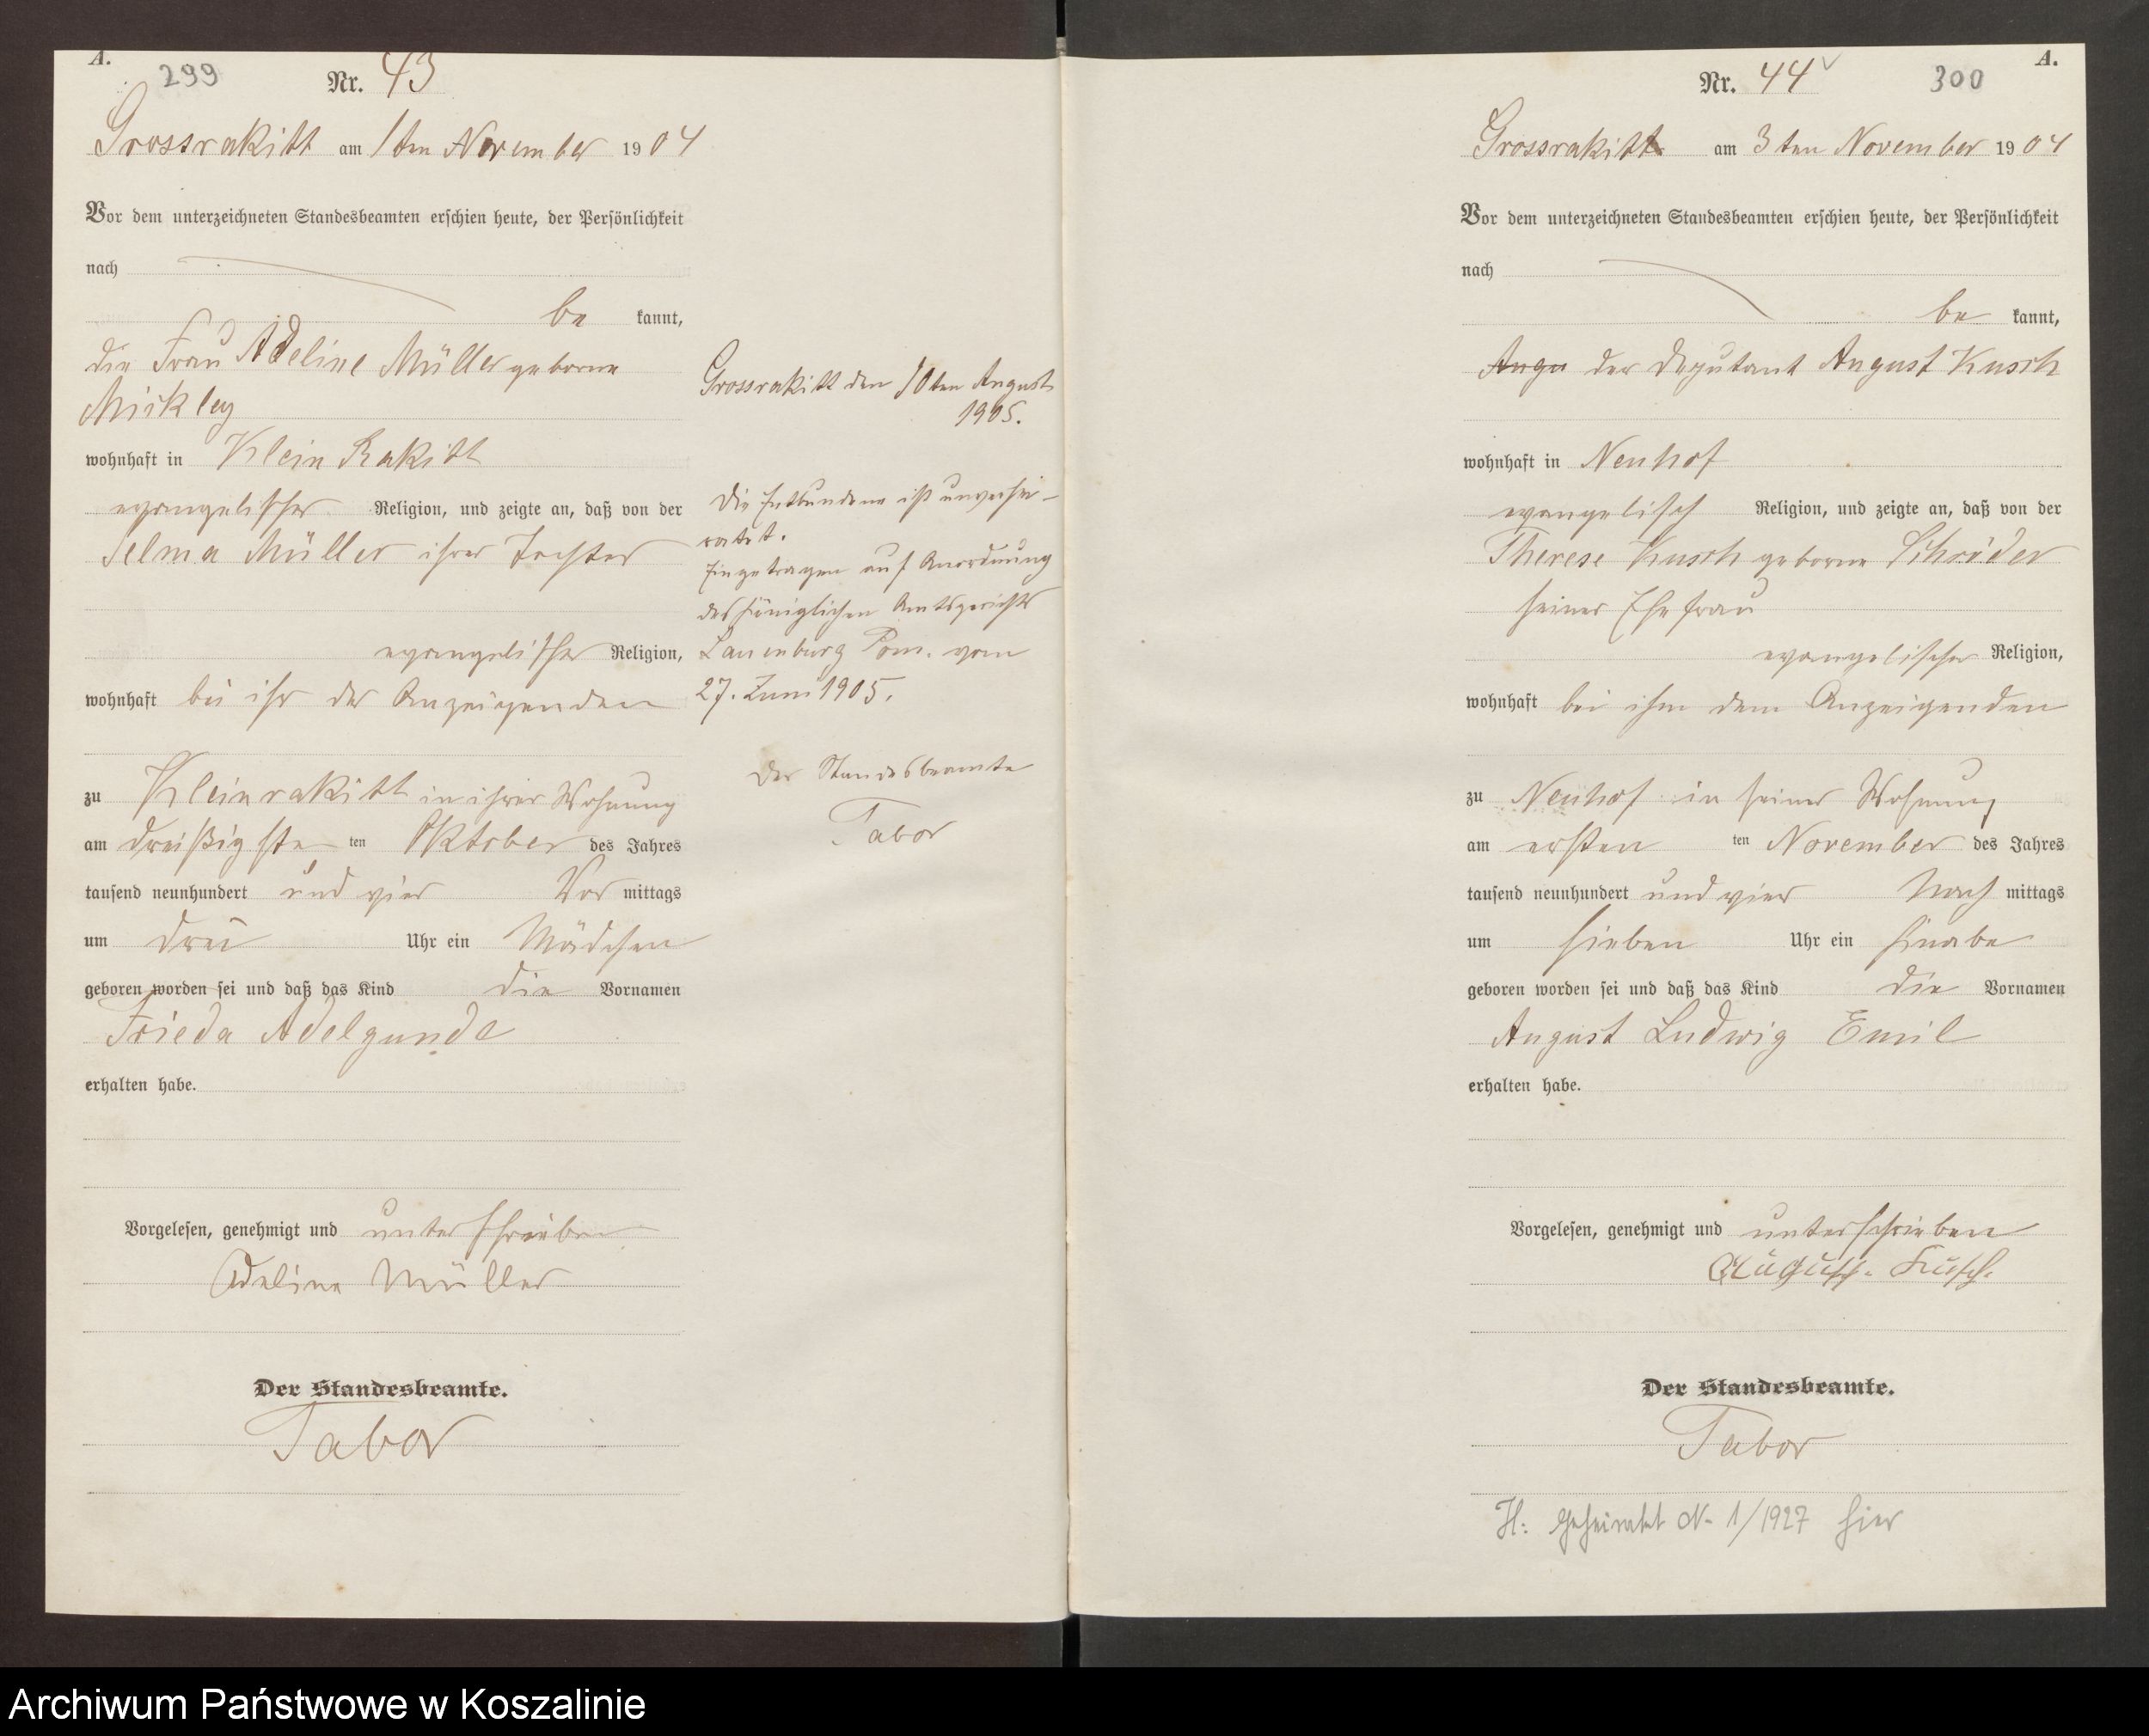 A.
299
Nr. 43
Grossrakitt am 1ten November 1904
Vor dem unterzeichneten Standesbeamten erschien heute, der Persönlichkeit
nach
be kannt,
die Frau Adeline Müller geborne
Mickley
wohnhaft in Klein Rakitt
evangelischer Religion, und zeigte an, daß von der
Selma Müller ihrer Tochter
evangelischer Religion,
wohnhaft bei ihr der Anzeigenden
zu Kleinrakitt in ihrer Wohnung
am dreißigsten ten Oktober des Jahres
tausend neunhundert und vier Vor mittags
um drei Uhr ein Mädchen
geboren worden sei und daß das Kind die Vornamen
Frieda Adelgunde
erhalten habe.
Vorgelesen, genehmigt und unterschrieben
Adeline Müller
Der Standesbeamte.
Tabor
Grossrakitt den 10ten August
1905.
Die Entbundene ist unverhei-
ratet.
Eingetragen auf Anordnung
des Königlichen Amtsgerichts
Lauenburg Pom. vom
27. Juni 1905.
Der Standesbeamte
Tabor
A.
Nr. 44
300
Grossrakitt am 3ten November 1904
Vor dem unterzeichneten Standesbeamten erschien heute, der Persönlichkeit
nach
be kannt,
Augu der Deputant August Kusch
wohnhaft in Neuhof
evangelisch Religion, und zeigte an, daß von der
Therese Kusch geborne Schröder
seiner Ehefrau
evangelischer Religion,
wohnhaft bei ihm dem Anzeigenden
zu Neuhof in seiner Wohnung
am ersten ten November des Jahres
tausend neunhundert und vier Nach mittags
um sieben Uhr ein Knabe
geboren worden sei und daß das Kind die Vornamen
August Ludwig Emil
erhalten habe.
Vorgelesen, genehmigt und unterschrieben
August Kusch.
Der Standesbeamte.
Tabor
H: Geheiratet N. 1/1927 hier
Archiwum Państwowe w Koszalinie